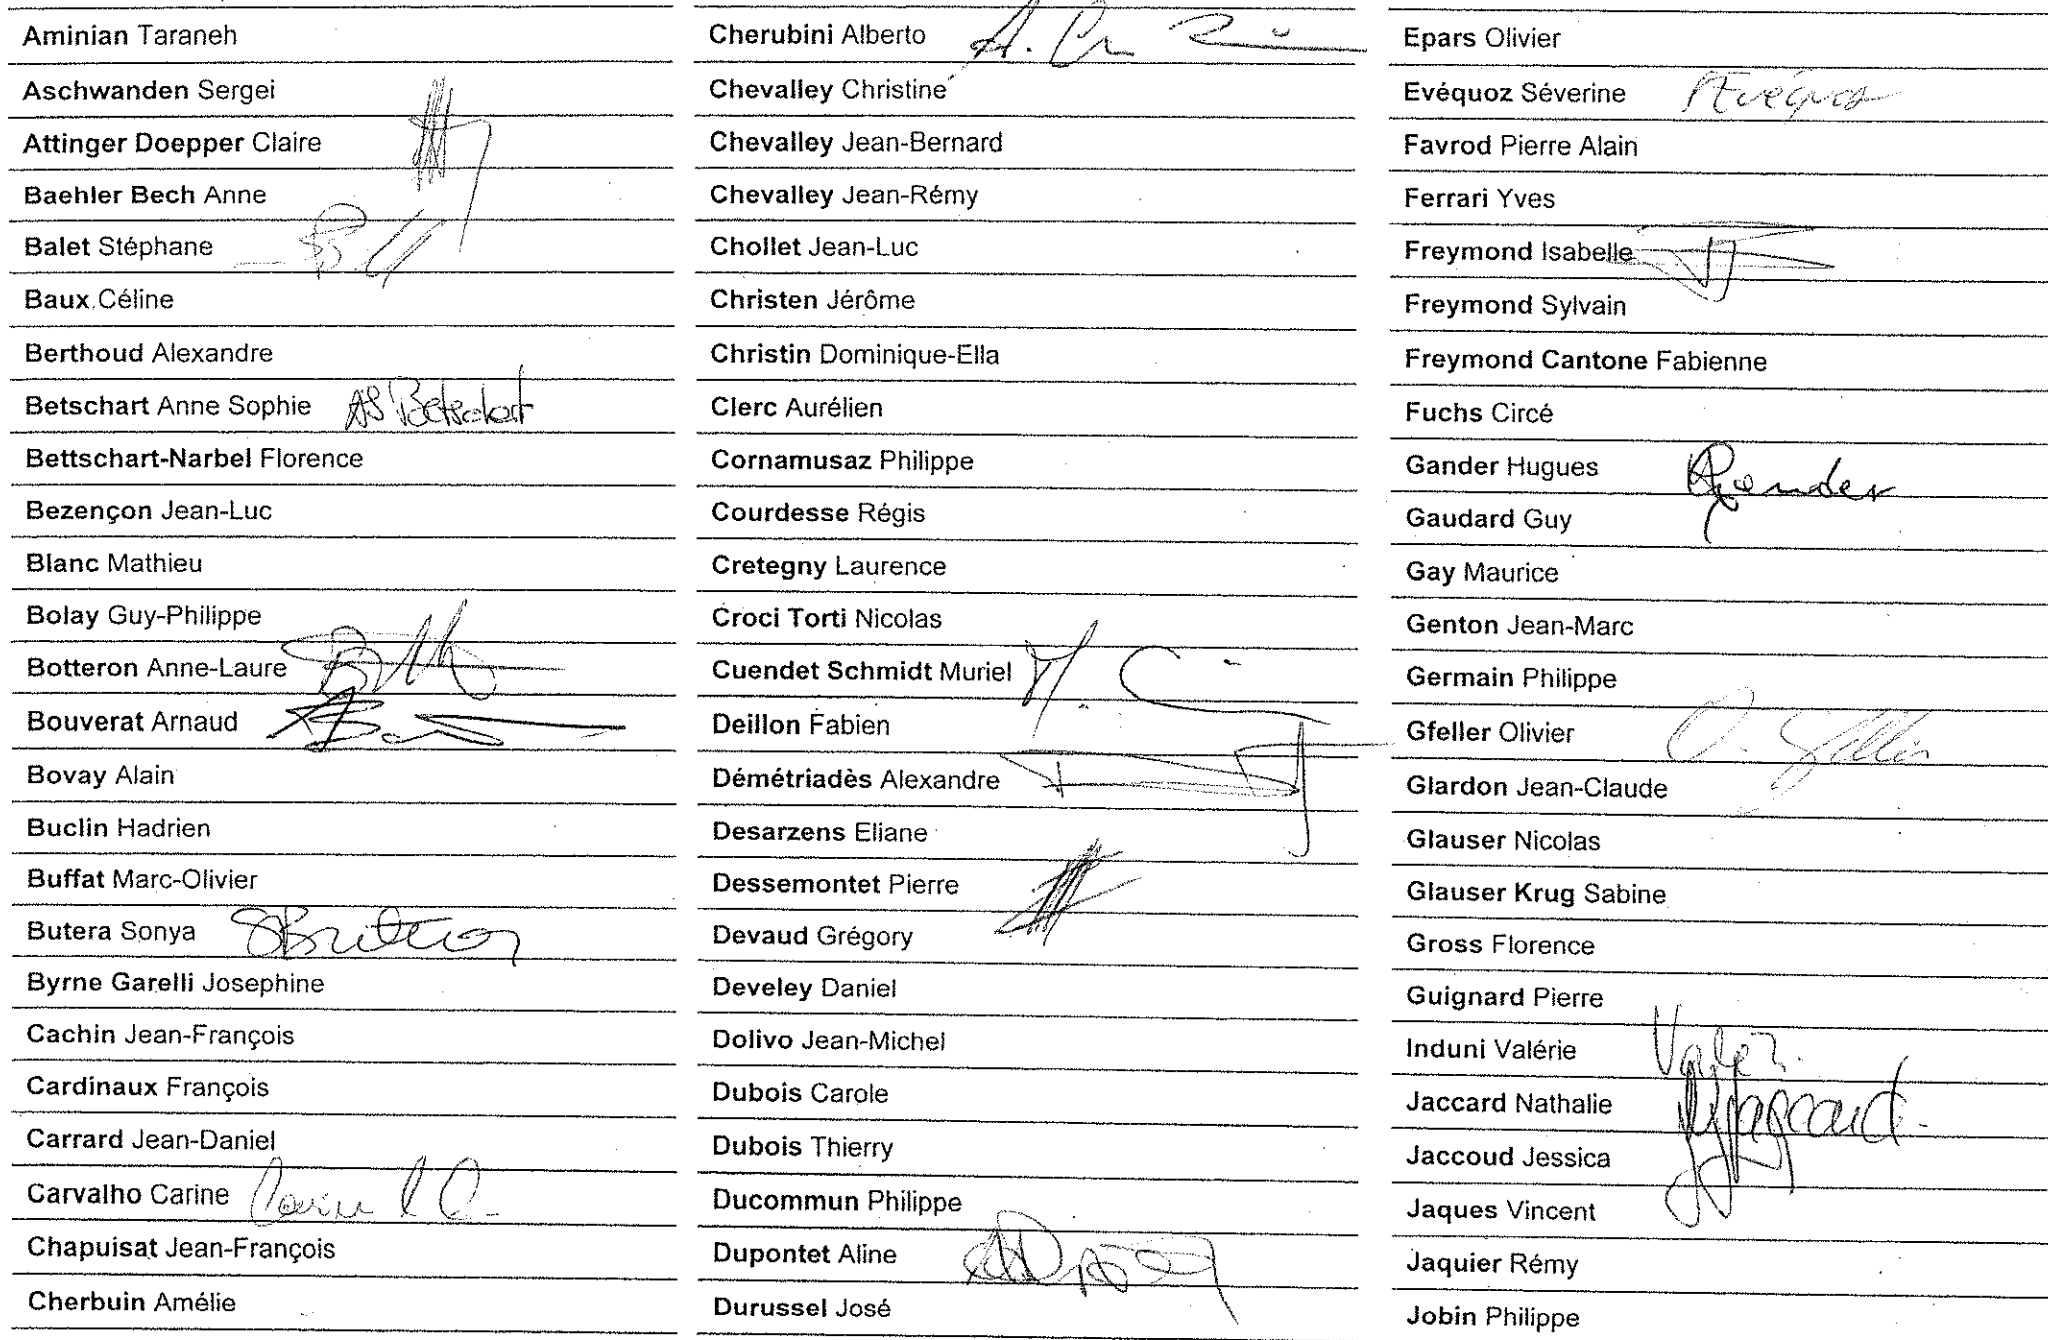 Aminian Taraneh
Aschwanden Sergei
Attinger Doepper Claire
Baehler Bech Anne
Balet Stéphane
Baux Céline
Berthoud Alexandre
Betschart Anne Sophie AS Betschart
Bettschart-Narbel Florence
Bezençon Jean-Luc
Blanc Mathieu
Bolay Guy-Philippe
Botteron Anne-Laure
Bouverat Arnaud
Bovay Alain
Buclin Hadrien
Buffat Marc-Olivier
Butera Sonya
Byrne Garelli Josephine
Cachin Jean-François
Cardinaux François
Carrard Jean-Daniel
Carvalho Carine
Chapuisat Jean-François
Cherbuin Amélie
Cherubini Alberto
Chevalley Christine
Chevalley Jean-Bernard
Chevalley Jean-Rémy
Chollet Jean-Luc
Christen Jérôme
Christin Dominique-Ella
Clerc Aurélien
Cornamusaz Philippe
Courdesse Régis
Cretegny Laurence
Croci Torti Nicolas
Cuendet Schmidt Muriel
Deillon Fabien
Démétriadès Alexandre
Desarzens Eliane
Dessemontet Pierre
Devaud Grégory
Develey Daniel
Dolivo Jean-Michel
Dubois Carole
Dubois Thierry
Ducommun Philippe
Dupontet Aline
Durussel José
Epars Olivier
Evéquoz Séverine
Favrod Pierre Alain
Ferrari Yves
Freymond Isabelle
Freymond Sylvain
Freymond Cantone Fabienne
Fuchs Circé
Gander Hugues Gander
Gaudard Guy
Gay Maurice
Genton Jean-Marc
Germain Philippe
Gfeller Olivier O. Gfeller
Glardon Jean-Claude
Glauser Nicolas
Glauser Krug Sabine
Gross Florence
Guignard Pierre
Induni Valérie
Jaccard Nathalie
Jaccoud Jessica
Jaques Vincent
Jaquier Rémy
Jobin Philippe